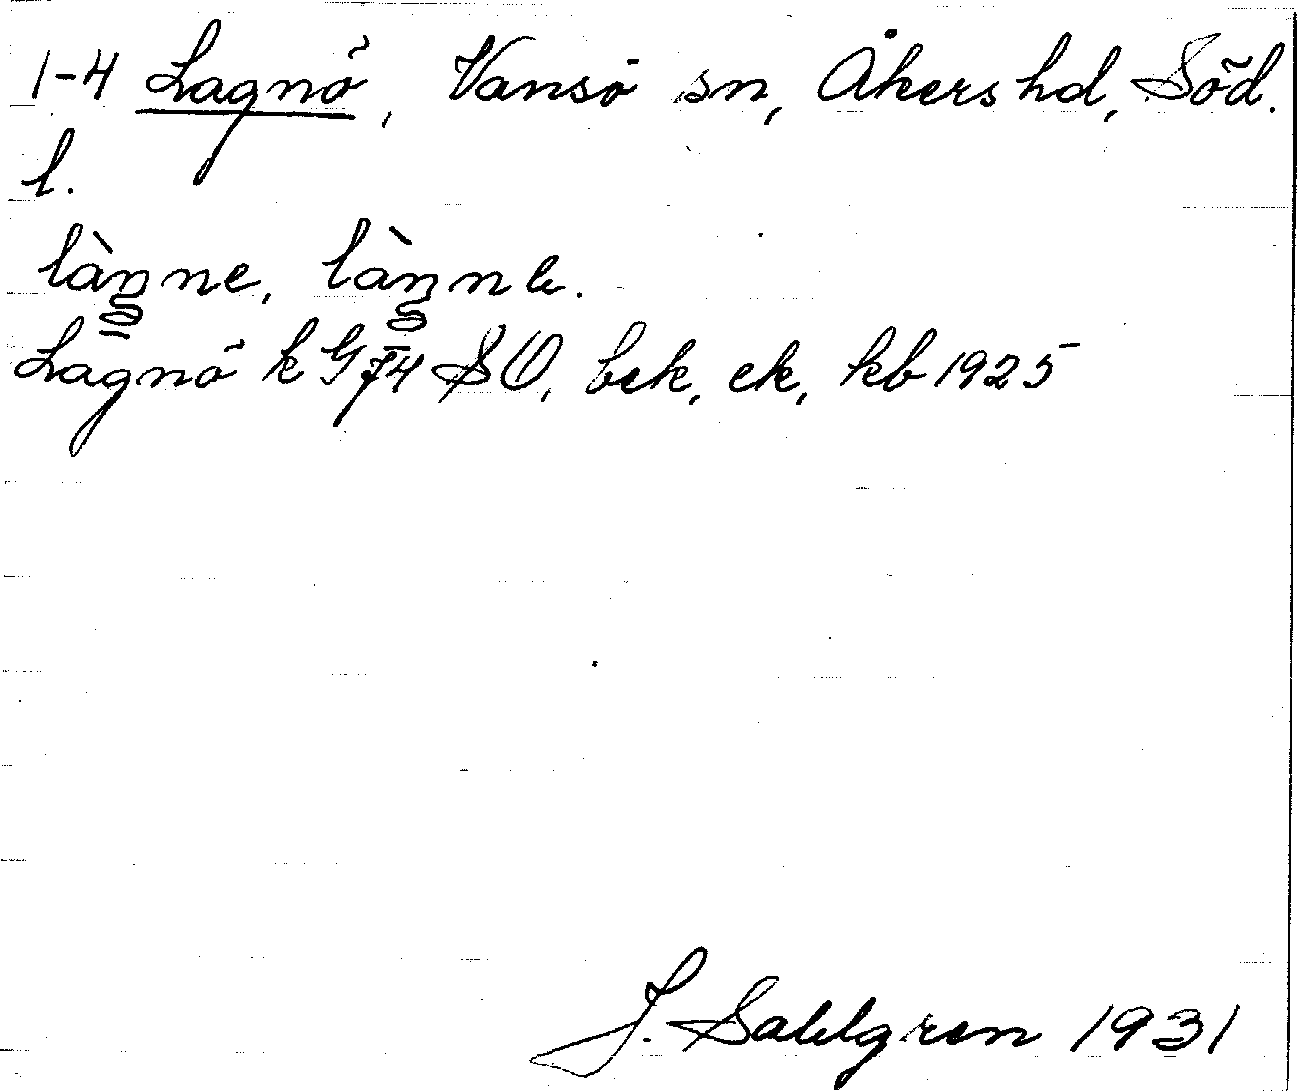 1-4 Lagnö, Vansö sn, Åkers hd, Söd.
l.
làŋne, làŋnɵ.
Lagnö k G 74 SO, bek, ek, kb 1925
J. Sahlgren 1931